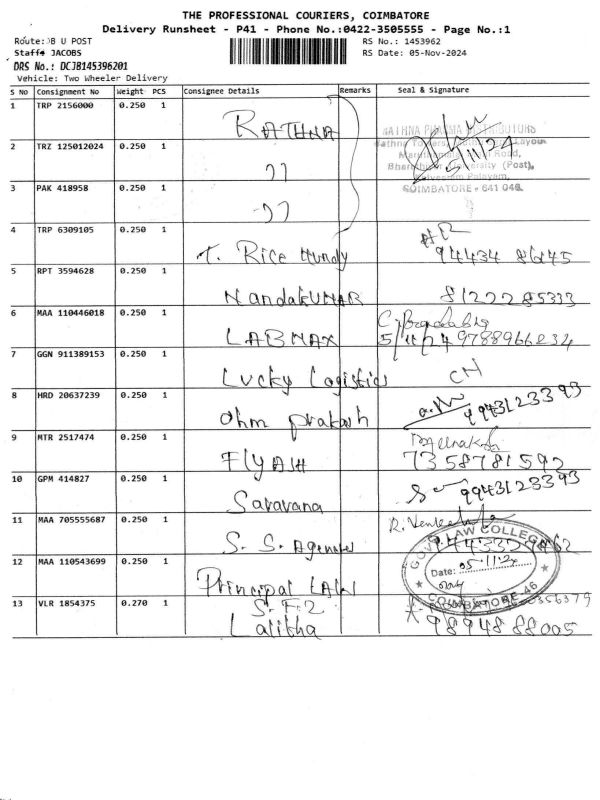 THE PROFESSIONAL COURIERS, COIMBATORE
Delivery Runsheet - P41 - Phone No.:0422-3505555 - Page No.:1
Route: B U POST
RS No.: 1453962
Staff: JACOBS
RS Date: 05-Nov-2024
DRS No.: DCJB145396201
Vehicle: Two Wheeler Delivery
S No Consignment No Weight PCS Consignee Details Remarks Seal & Signature
1 TRP 2156000 0.250 1 RATHNA
2 TRZ 125012024 0.250 1 ,,
5/11/24
3 PAK 418958 0.250 1 ,,
COIMBATORE - 641 046
4 TRP 6309105 0.250 1 T. Rice Mundy
5 RPT 3594628 0.250 1 NandakUMAR 8122285333
6 MAA 110446018 0.250 1 LABMAX
5/11/24 9788966234
7 GGN 911389153 0.250 1 Lucky Logistics CH
8 HRD 20637239 0.250 1 Ohm prakash 9943123393
9 MTR 2517474 0.250 1 FlyASH
7358781592
10 GPM 414827 0.250 1 Saravana 9943123393
11 MAA 705555687 0.250 1 S. S. Agencies
12 MAA 110543699 0.250 1 Principal LAW
GOVT. LAW COLLEGE
Date: 05.11.24
COIMBATORE-46
13 VLR 1854375 0.270 1 S.F.2
Lalitha 9894888005